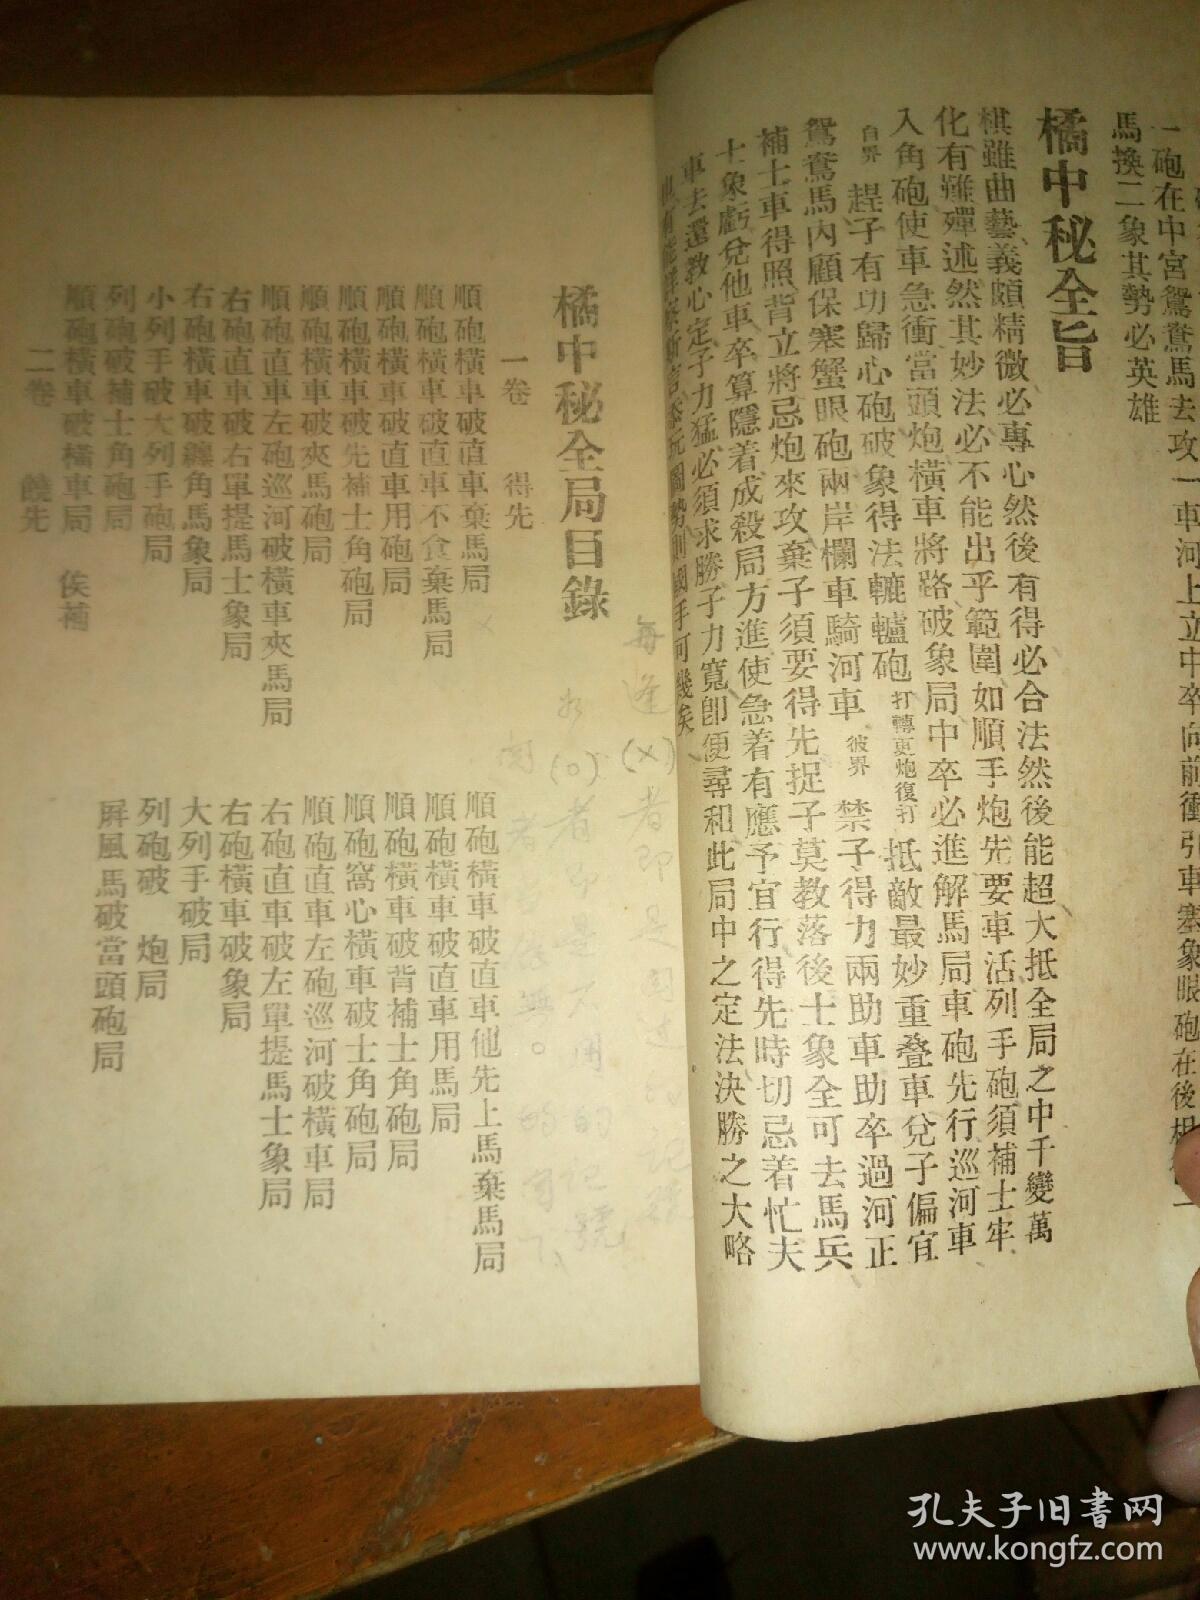 一砲在中宮鴛鴦馬去攻一車河上立中卒向前衝引車塞象眼砲在後相
馬換二象其勢必英雄
橘中秘全旨
棋雖曲藝義頗精微必專心然後有得必合法然後能超大抵全局之中千變萬
化有難殫述然其妙法必不能出乎範圍如順手炮先要車活列手砲須補士牢
入角砲使車急衝當頭炮橫車將路破象局中卒必進解馬局車砲先行巡河車
自界 趕子有功歸心砲破象得法轆轤砲 打轉更炮復打 抵敵最妙重叠車兌子偏宜
鴛鴦馬內顧保寨蟹眼砲兩岸欄車騎河車 彼界 禁子得力兩助車助卒過河正
補士車得照背立將忌炮來攻棄子須要得先捉子莫教落後士象全可去馬兵
士象虧兌他車卒算隱着成殺局方進使急着有應予宜行得先時切忌着忙夫
車去還教心定子力猛必須求勝子力寬卽便尋和此局中之定法決勝之大略
也有能詳察斯言添玩圖勢則國手可幾矣
橘中秘全局目錄
一卷 得先
順砲橫車破直車棄馬局
順砲橫車破直車不食棄馬局
順砲橫車破直車用砲局
順砲橫車破先補士角砲局
順砲橫車破夾馬砲局
順砲直車左砲巡河破橫車夾馬局
右砲直車破右單提馬士象局
右砲橫車破纏角馬象局
小列手破大列手砲局
列砲破補士角砲局
順砲橫車破橫車局 俟補
二卷 饒先
順砲橫車破直車他先上馬棄馬局
順砲橫車破直車用馬局
順砲橫車破背補士角砲局
順砲窩心橫車破士角砲局
順砲直車左砲巡河破橫車局
右砲直車破左單提馬士象局
右砲橫車破象局
大列手破局
列砲破 炮局
屏風馬破當頭砲局
每逢(×)者即是圈过的记號
(○)者即是不用的记號
孔夫子旧书网
www.kongfz.com